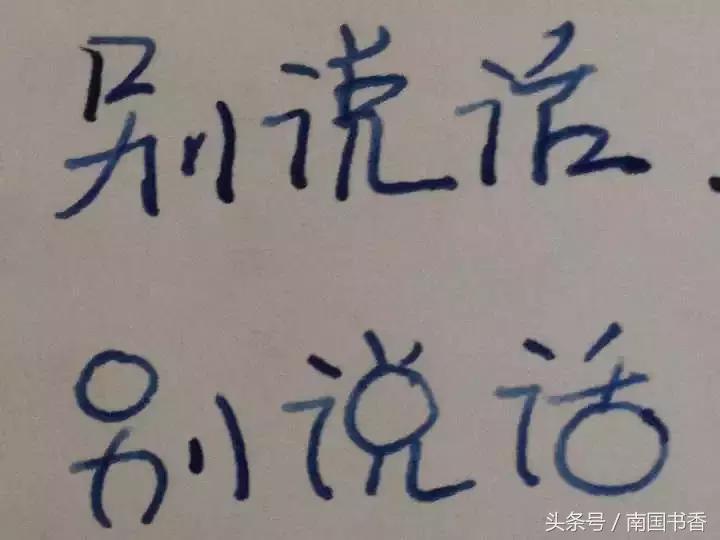 别说话.
别说话
头条号 / 南国书香